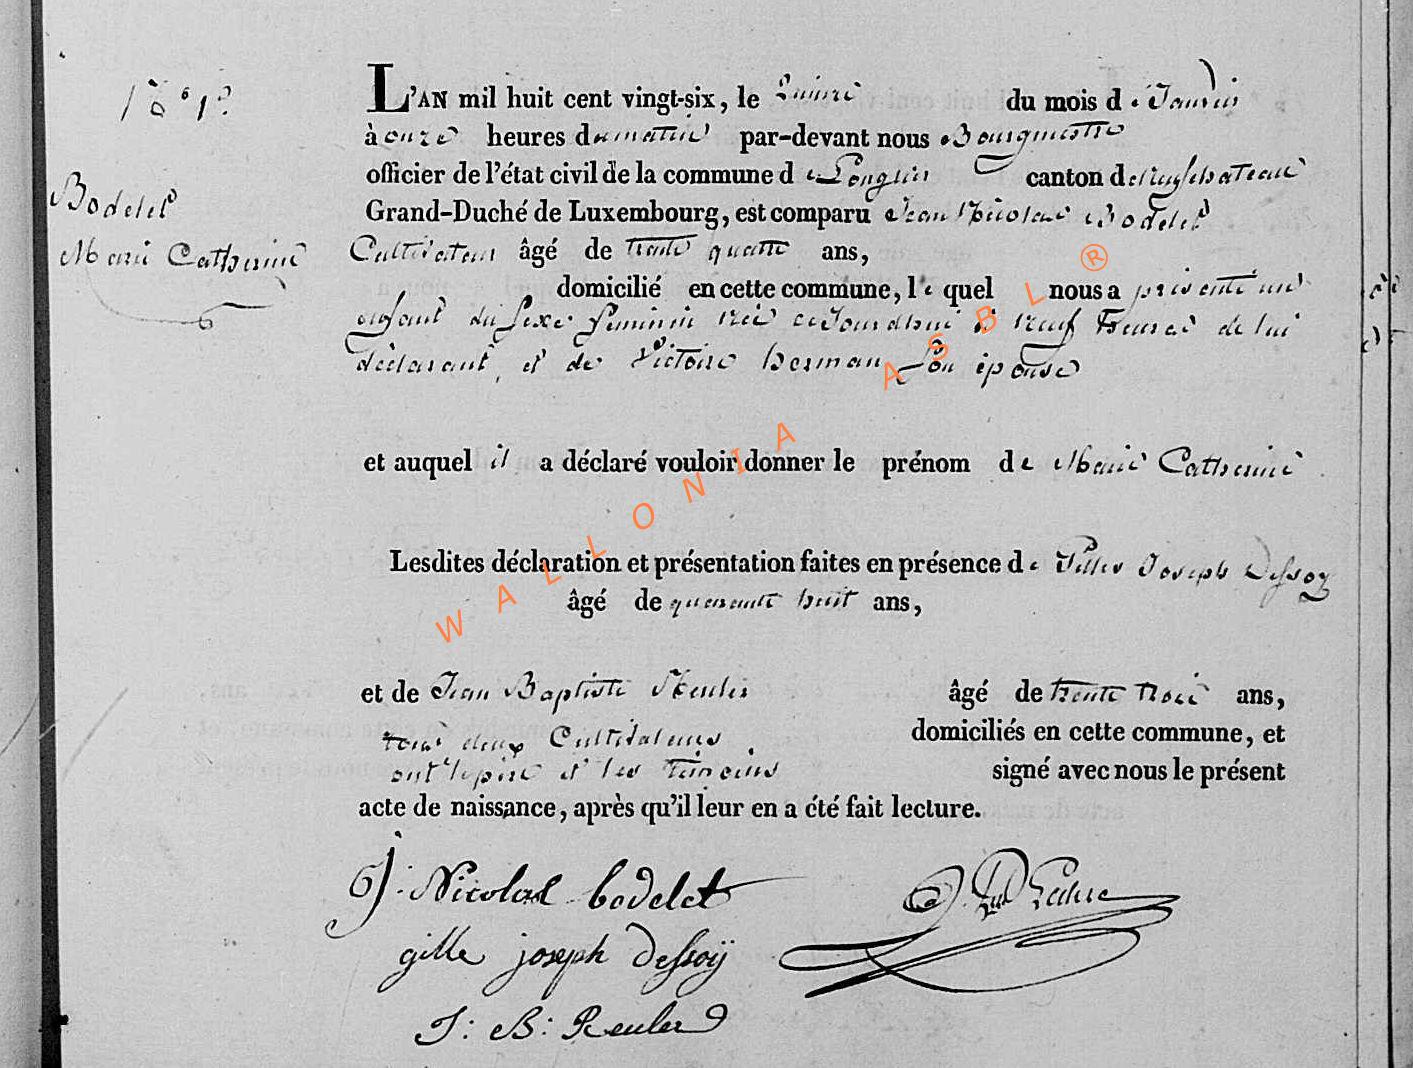 Bodelet
Marie Catherine
L'AN mil huit cent vingt-six, le Quinze du mois de Janvier
à onze heures du matin par-devant nous Bourgmestre
officier de l'état civil de la commune de Longlier canton de neufchateau
Grand-Duché de Luxembourg, est comparu Jean Nicolas Bodelet
Cultivateur âgé de trente quatre ans,
domicilié en cette commune, lequel nous a présenté un
enfant du sexe feminin née aujourdhui à neuf heures de lui
déclarant, et de Victoire herman son épouse
et auquel il a déclaré vouloir donner le prénom de Marie Catherine
Lesdites déclaration et présentation faites en présence de Gilles Joseph Dessoy
âgé de quarante huit ans,
et de Jean Baptiste Reuler âgé de trente trois ans,
tous deux Cultivateurs domiciliés en cette commune, et
ont le père et les témoins signé avec nous le présent
acte de naissance, après qu'il leur en a été fait lecture.
J: Nicolas bodelet
gille joseph Dessoÿ
J: B: Reuler
WALLONIA ASBL ®